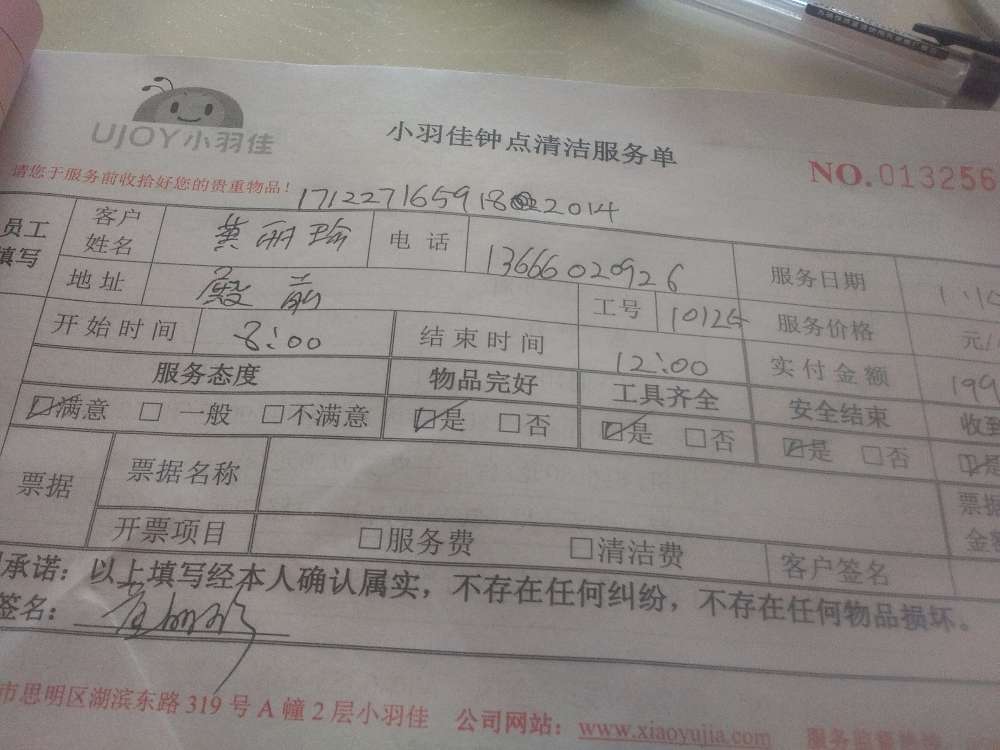 UJOY小羽佳
小羽佳钟点清洁服务单
NO.013256
请您于服务前收拾好您的贵重物品！
员工填写 客户姓名 电话 13666020926 服务日期
地址 殿前 工号 10125 服务价格 元/
开始时间 8:00 结束时间 12:00 实付金额 199
服务态度 物品完好 工具齐全 安全结束 收到
☑满意 □一般 □不满意 ☑是 □否 ☑是 □否 ☑是 □否 ☑是
票据 票据名称 票据金额
开票项目 □服务费 □清洁费 客户签名
承诺：以上填写经本人确认属实，不存在任何纠纷，不存在任何物品损坏。
签名：
市思明区湖滨东路319号A幢2层小羽佳 公司网站：www.xiaoyujia.com